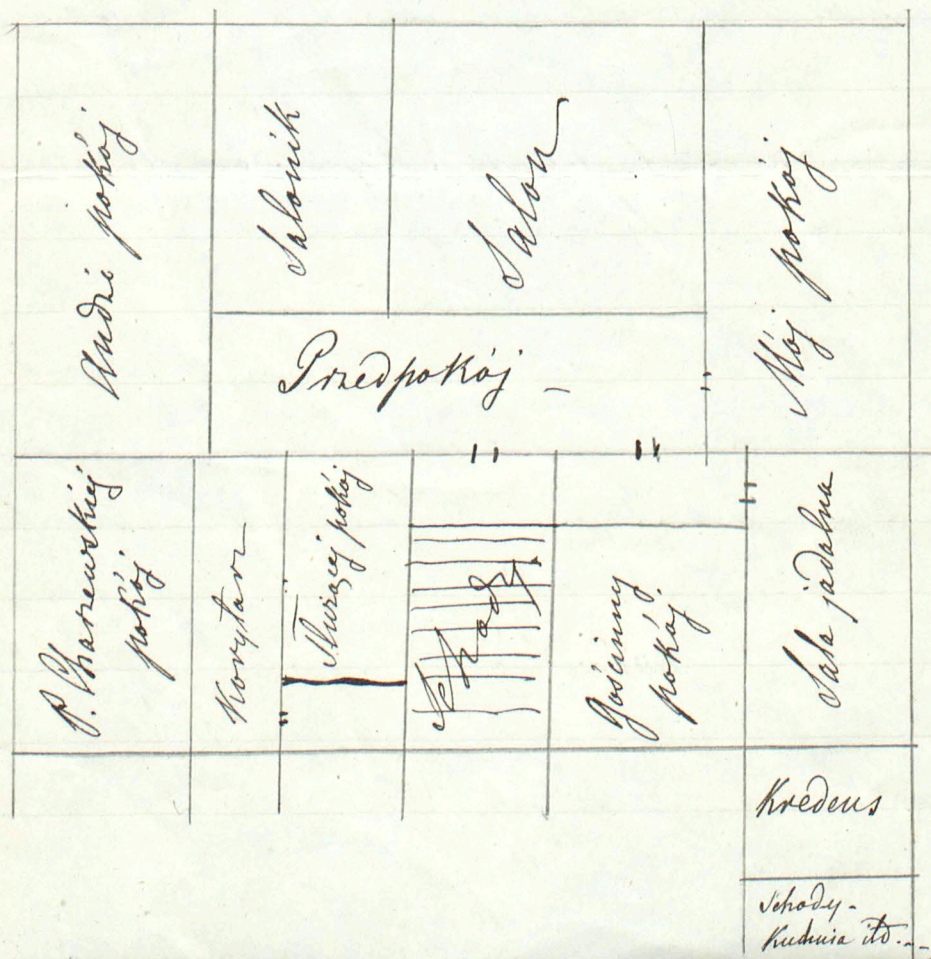 Andzi pokój
Salonik
Salon
Mój pokój
Przedpokój
P. Charzewskiej
pokój
Korytarz
Służącej pokój
Schody
Gościnny
pokój
Sala jadalna
Kredens
Schody -
Kuchnia itd. --